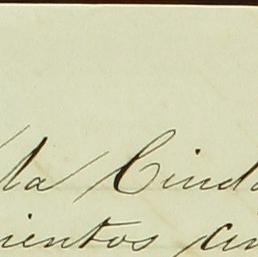 la Ciuda
ientos cu